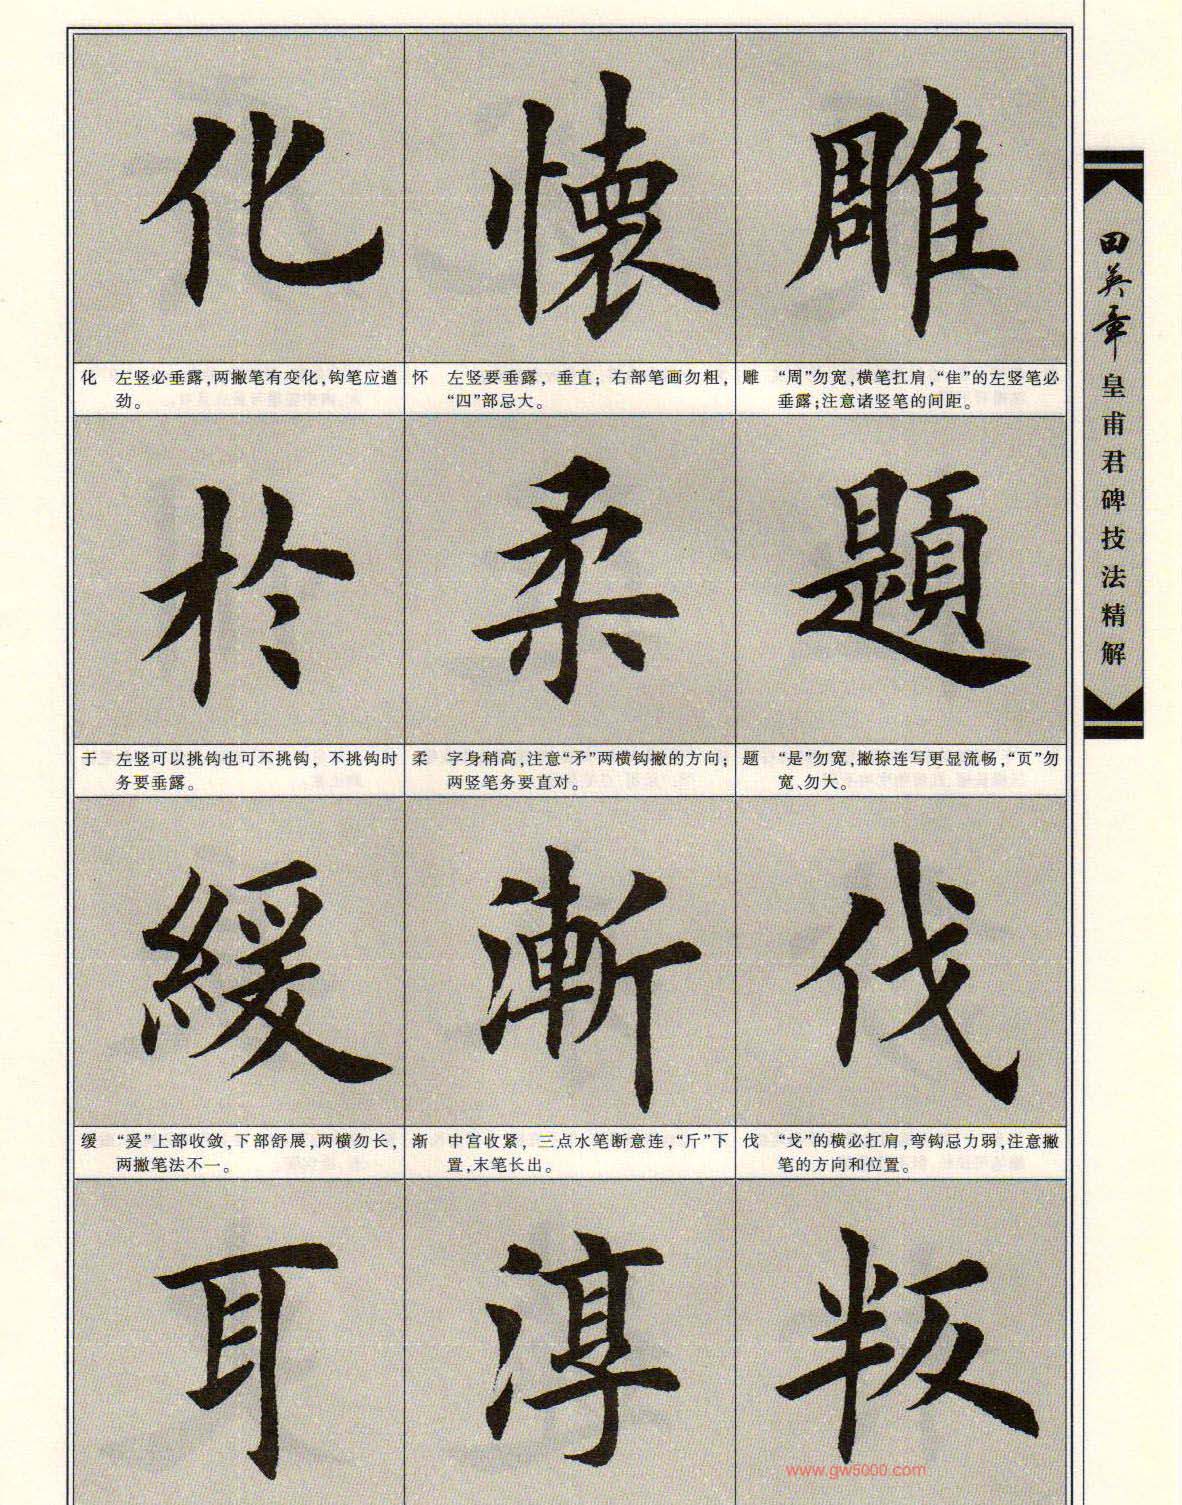 化
懷
雕
化 左竖必垂露，两撇笔有变化，钩笔应遒
劲。
怀 左竖要垂露，垂直；右部笔画勿粗，
“四”部忌大。
雕 “周”勿宽，横笔扛肩，“隹”的左竖笔必
垂露；注意诸竖笔的间距。
於
柔
題
于 左竖可以挑钩也可不挑钩，不挑钩时
务要垂露。
柔 字身稍高，注意“矛”两横钩撇的方向；
两竖笔务要直对。
题 “是”勿宽，撇捺连写更显流畅，“页”勿
宽、勿大。
緩
漸
伐
缓 “爰”上部收敛，下部舒展，两横勿长，
两撇笔法不一。
渐 中宫收紧，三点水笔断意连，“斤”下
置，末笔长出。
伐 “戈”的横必扛肩，弯钩忌力弱，注意撇
笔的方向和位置。
耳
淳
叛
田英章皇甫君碑技法精解
www.gw5000.com